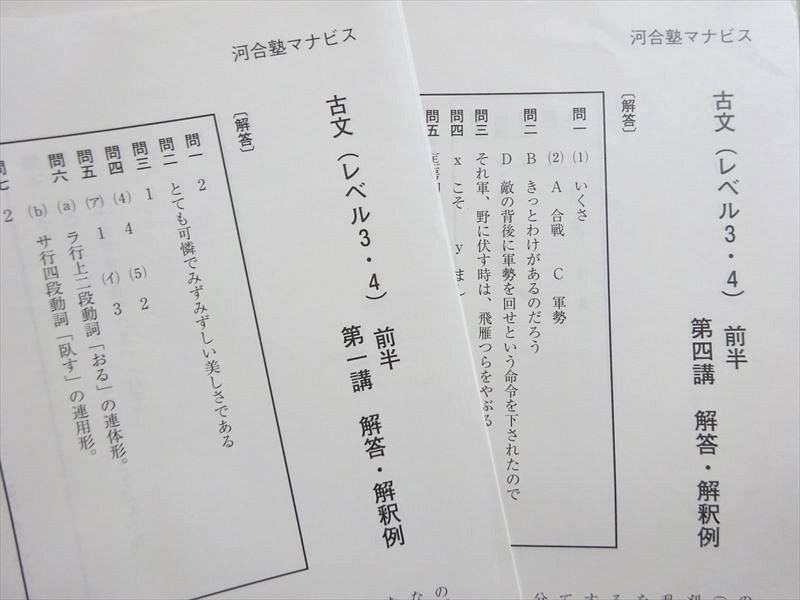 河合塾マナビス
古文(レベル3・4) 前半
第四講 解答・解釈例
〔解答〕
問一 (1) いくさ
(2) A 合戦 C 軍勢
問二 B きっとわけがあるのだろう
D 敵の背後に軍勢を回せという命令を下されたので
問三 それ軍、野に伏す時は、飛雁つらをやぶる
問四 x こそ y
問五
河合塾マナビス
古文(レベル3・4) 前半
第一講 解答・解釈例
〔解答〕
問一 2
問二 とても可憐でみずみずしい美しさである
問三 1
問四 (4) 4 (5) 2
問五 (ア) 1 (イ) 3
問六 (a) ラ行上二段動詞「おる」の連体形。
(b) サ行四段動詞「臥す」の連用形。
問七 2